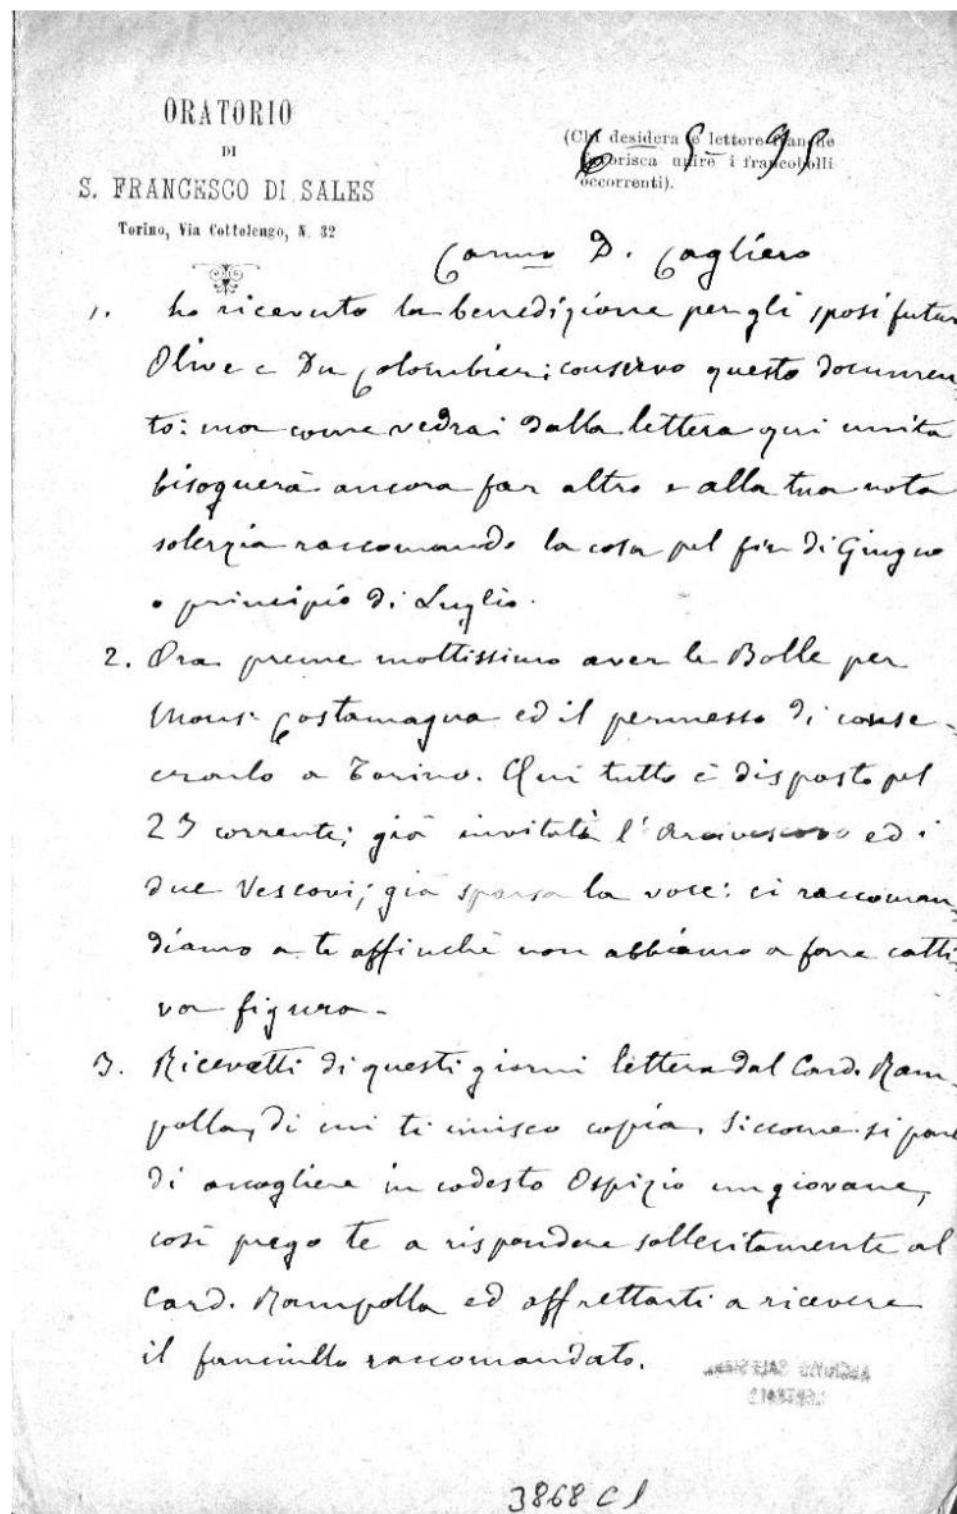 ORATORIO
DI
S. FRANCESCO DI SALES
Torino, Via Cottolengo, N. 32
(Chi desidera lettere franche
favorisca unire i francobolli
occorrenti).
6 5 95
Carmo D. Cagliero
1. ho ricevuto la benedizione per gli sposi futur
Olive e Du Colombier; conservo questo documen-
to: ma come vedrai dalla lettera qui unita
bisognerà ancora far altro e alla tua nota
solerzia raccomando la cosa pel fin di Giugno
o principio di Luglio.
2. Ora preme moltissimo aver le Bolle per
Mons. Costamagna ed il permesso di conse-
crarlo a Torino. Qui tutto è disposto pel
23 corrente; già invitati l'Arcivescovo ed i
due Vescovi; già sparsa la voce: ci raccoman-
diamo a te affinchè non abbiamo a fare catti-
va figura.
3. Ricevetti di questi giorni lettera dal Card. Ram-
polla, di cui ti unisco copia. Siccome si parla
di accogliere in codesto Ospizio un giovane,
così prego te a rispondere sollecitamente al
Card. Rampolla ed affrettarti a ricevere
il fanciullo raccomandato.
ARCHIVIO SALESIANO
CENTRALE
3868 C 1